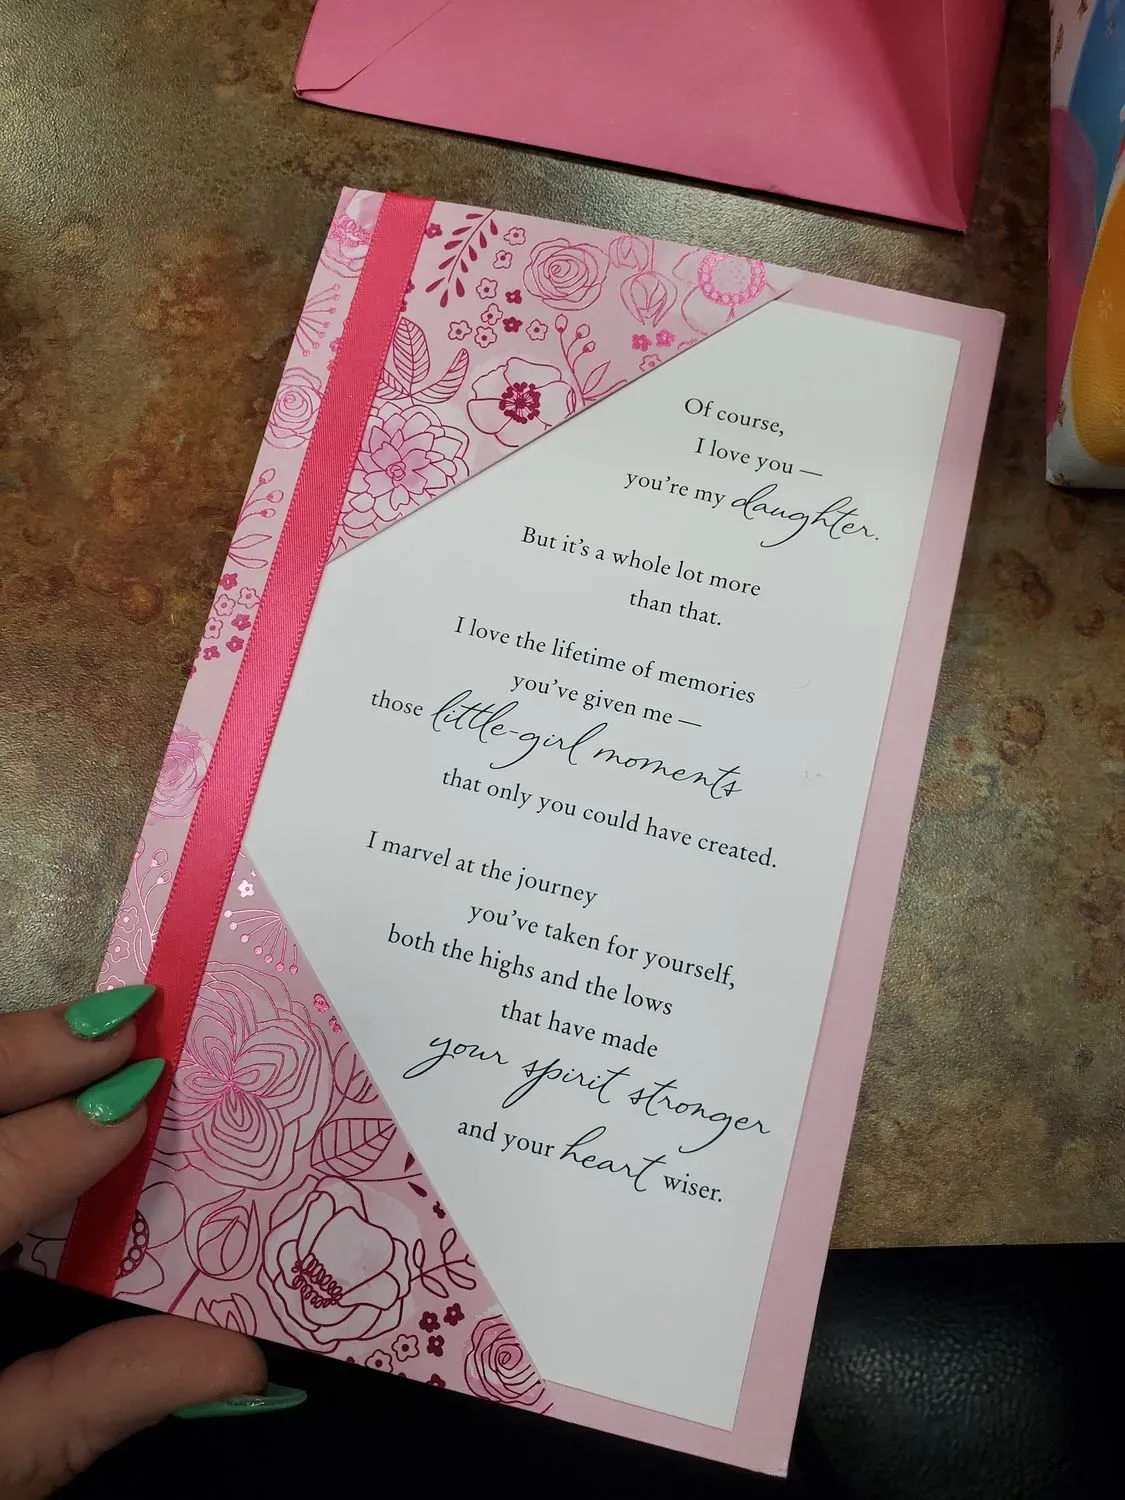 Of course,
I love you —
you're my daughter.
But it's a whole lot more
than that.
I love the lifetime of memories
you've given me —
those little-girl moments
that only you could have created.
I marvel at the journey
you've taken for yourself,
both the highs and the lows
that have made
your spirit stronger
and your heart wiser.